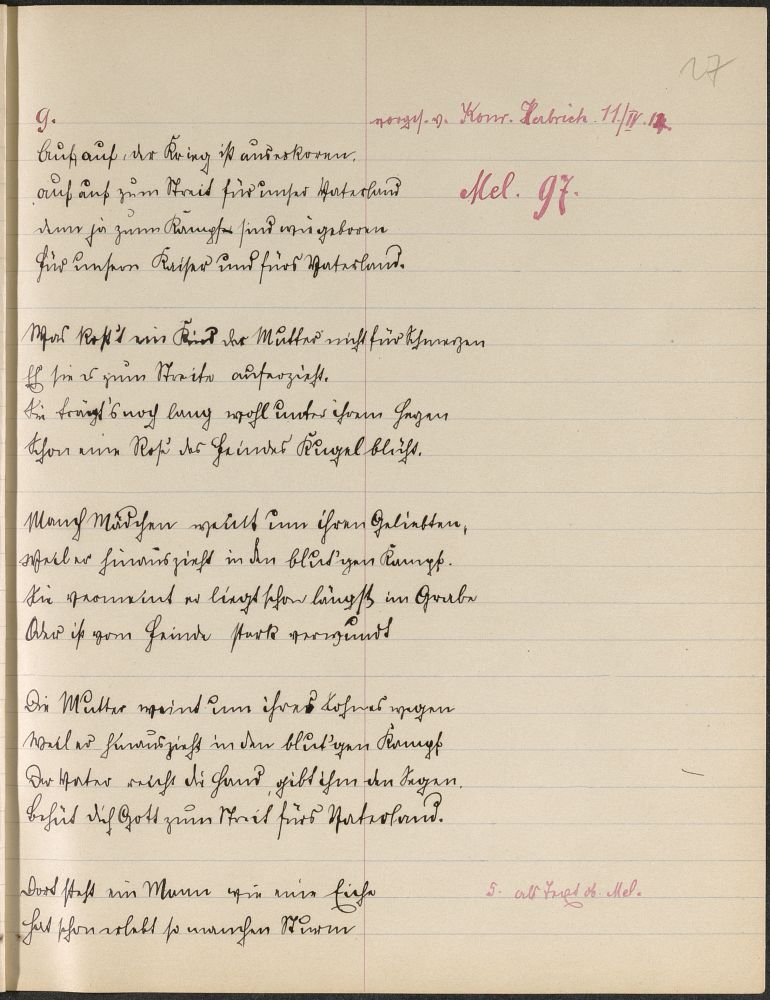 27
9.
vorges. v. Konr. Herbrich. 11./IV. 14.
Auf, auf, der Krieg ist auserkoren.
auf auf zum Streit für unser Vaterland
Mel. 97.
denn ja zum Kampfe sind wir geboren
Für unsern Kaiser und fürs Vaterland.
Was kost't ein Kind der Mutter nicht für Schmerzen
Eh sie es zum Streite auferzieht.
Sie trägt's noch lang wohl unter ihrem Herzen
Schon eine Rose des Feindes Kugel blüht.
Manch Mädchen weint um ihren Geliebten,
Weil er hinauszieht in den blut'gen Kampf.
Sie vermeint er liegt schon längst im Grabe
Oder ist vom Feinde stark verwundt
Die Mutter weint um ihres Sohnes wegen
Weil er hinauszieht in den blut'gen Kampf
Der Vater reicht die Hand, gibt ihm den Segen.
Behüt dich Gott zum Streit fürs Vaterland.
Dort steht ein Mann wie eine Eiche
5. als Text ob. Mel.
Hat schon erlebt so manchen Sturm